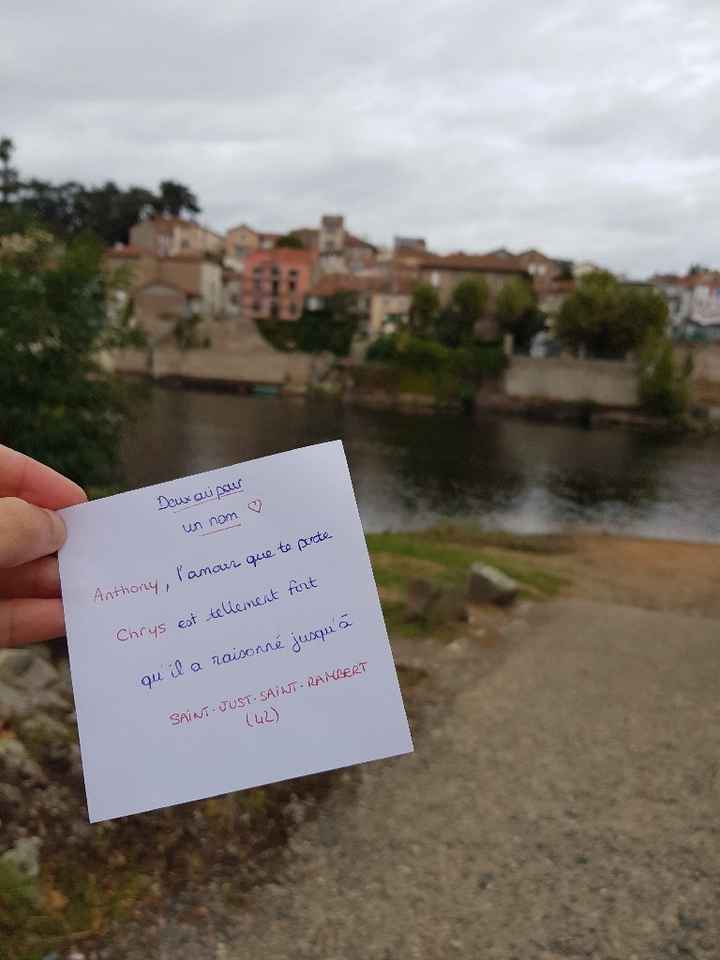 Deux oui pour
un nom ♡
Anthony, l'amour que te porte
Chrys est tellement fort
qu'il a raisonné jusqu'à
SAINT-JUST-SAINT-RAMBERT
(42)